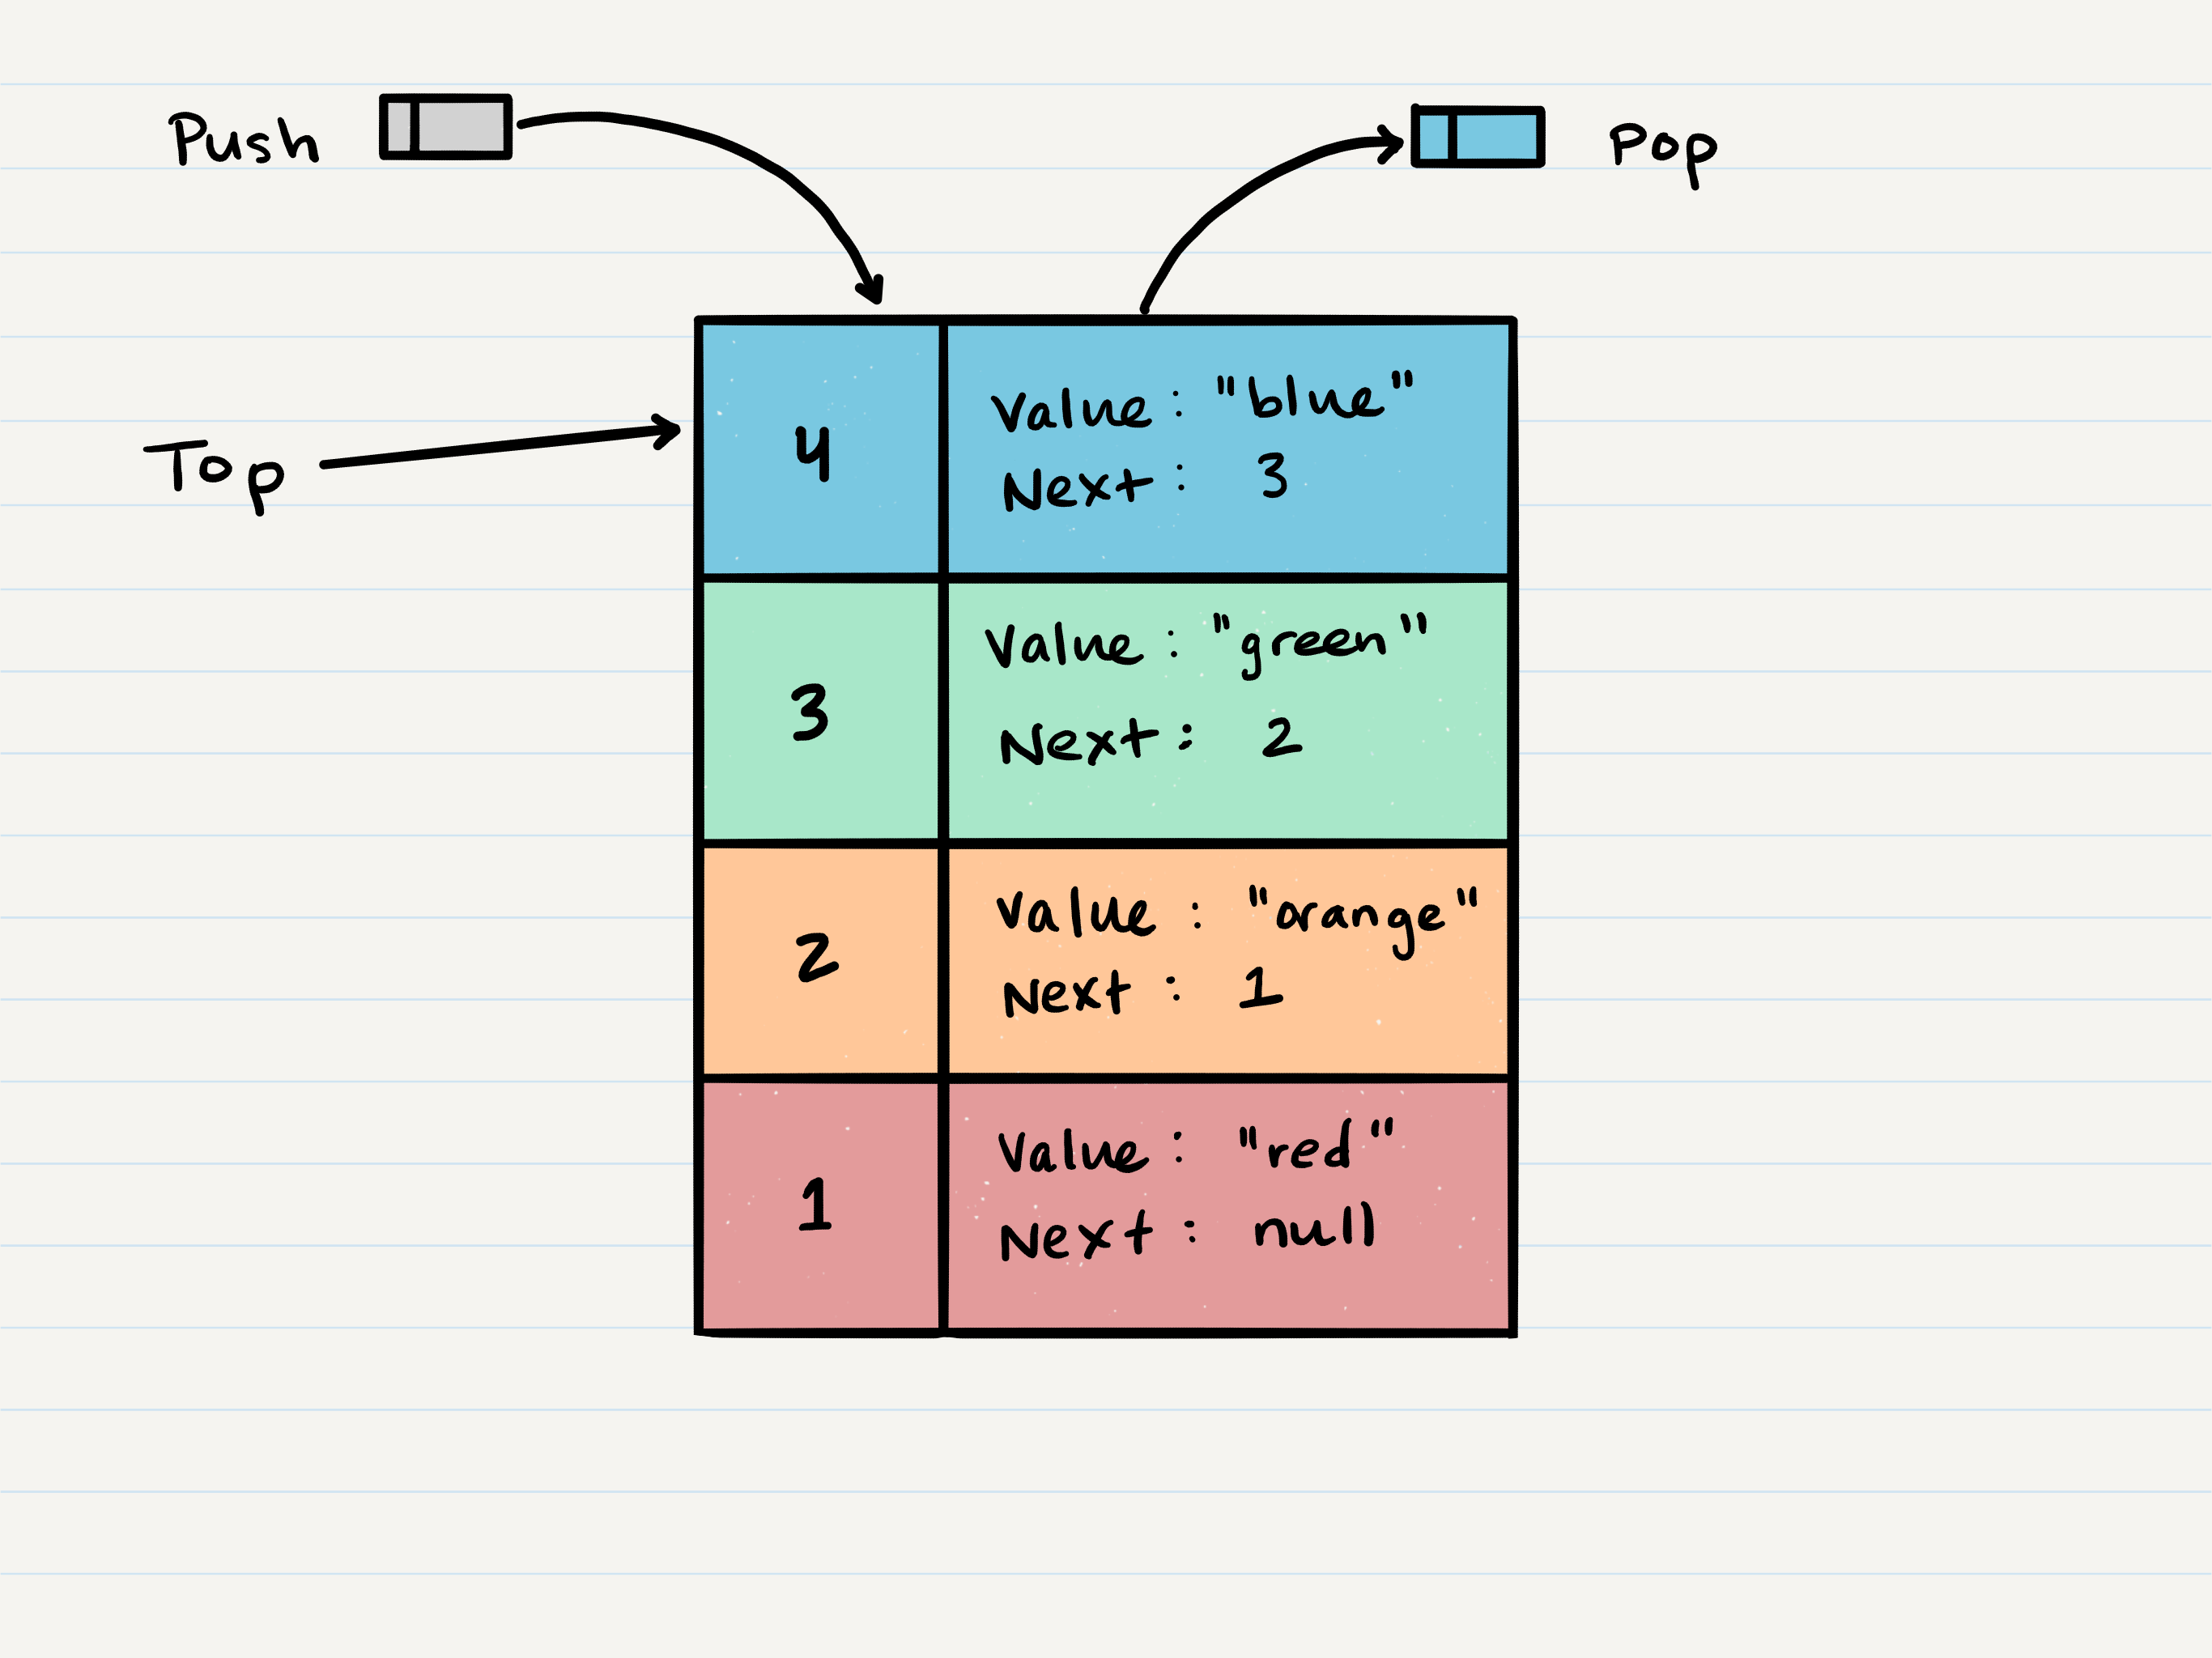 Push
Pop
Top
4
Value : "blue"
Next : 3
3
Value : "green"
Next : 2
2
Value : "orange"
Next : 1
1
Value : "red"
Next : null